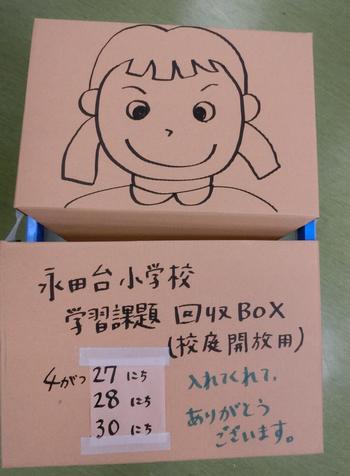 永田台小学校
学習課題 回収BOX
(校庭開放用)
4がつ 27 にち
28 にち
30 にち
入れてくれて、
ありがとう
ございます。